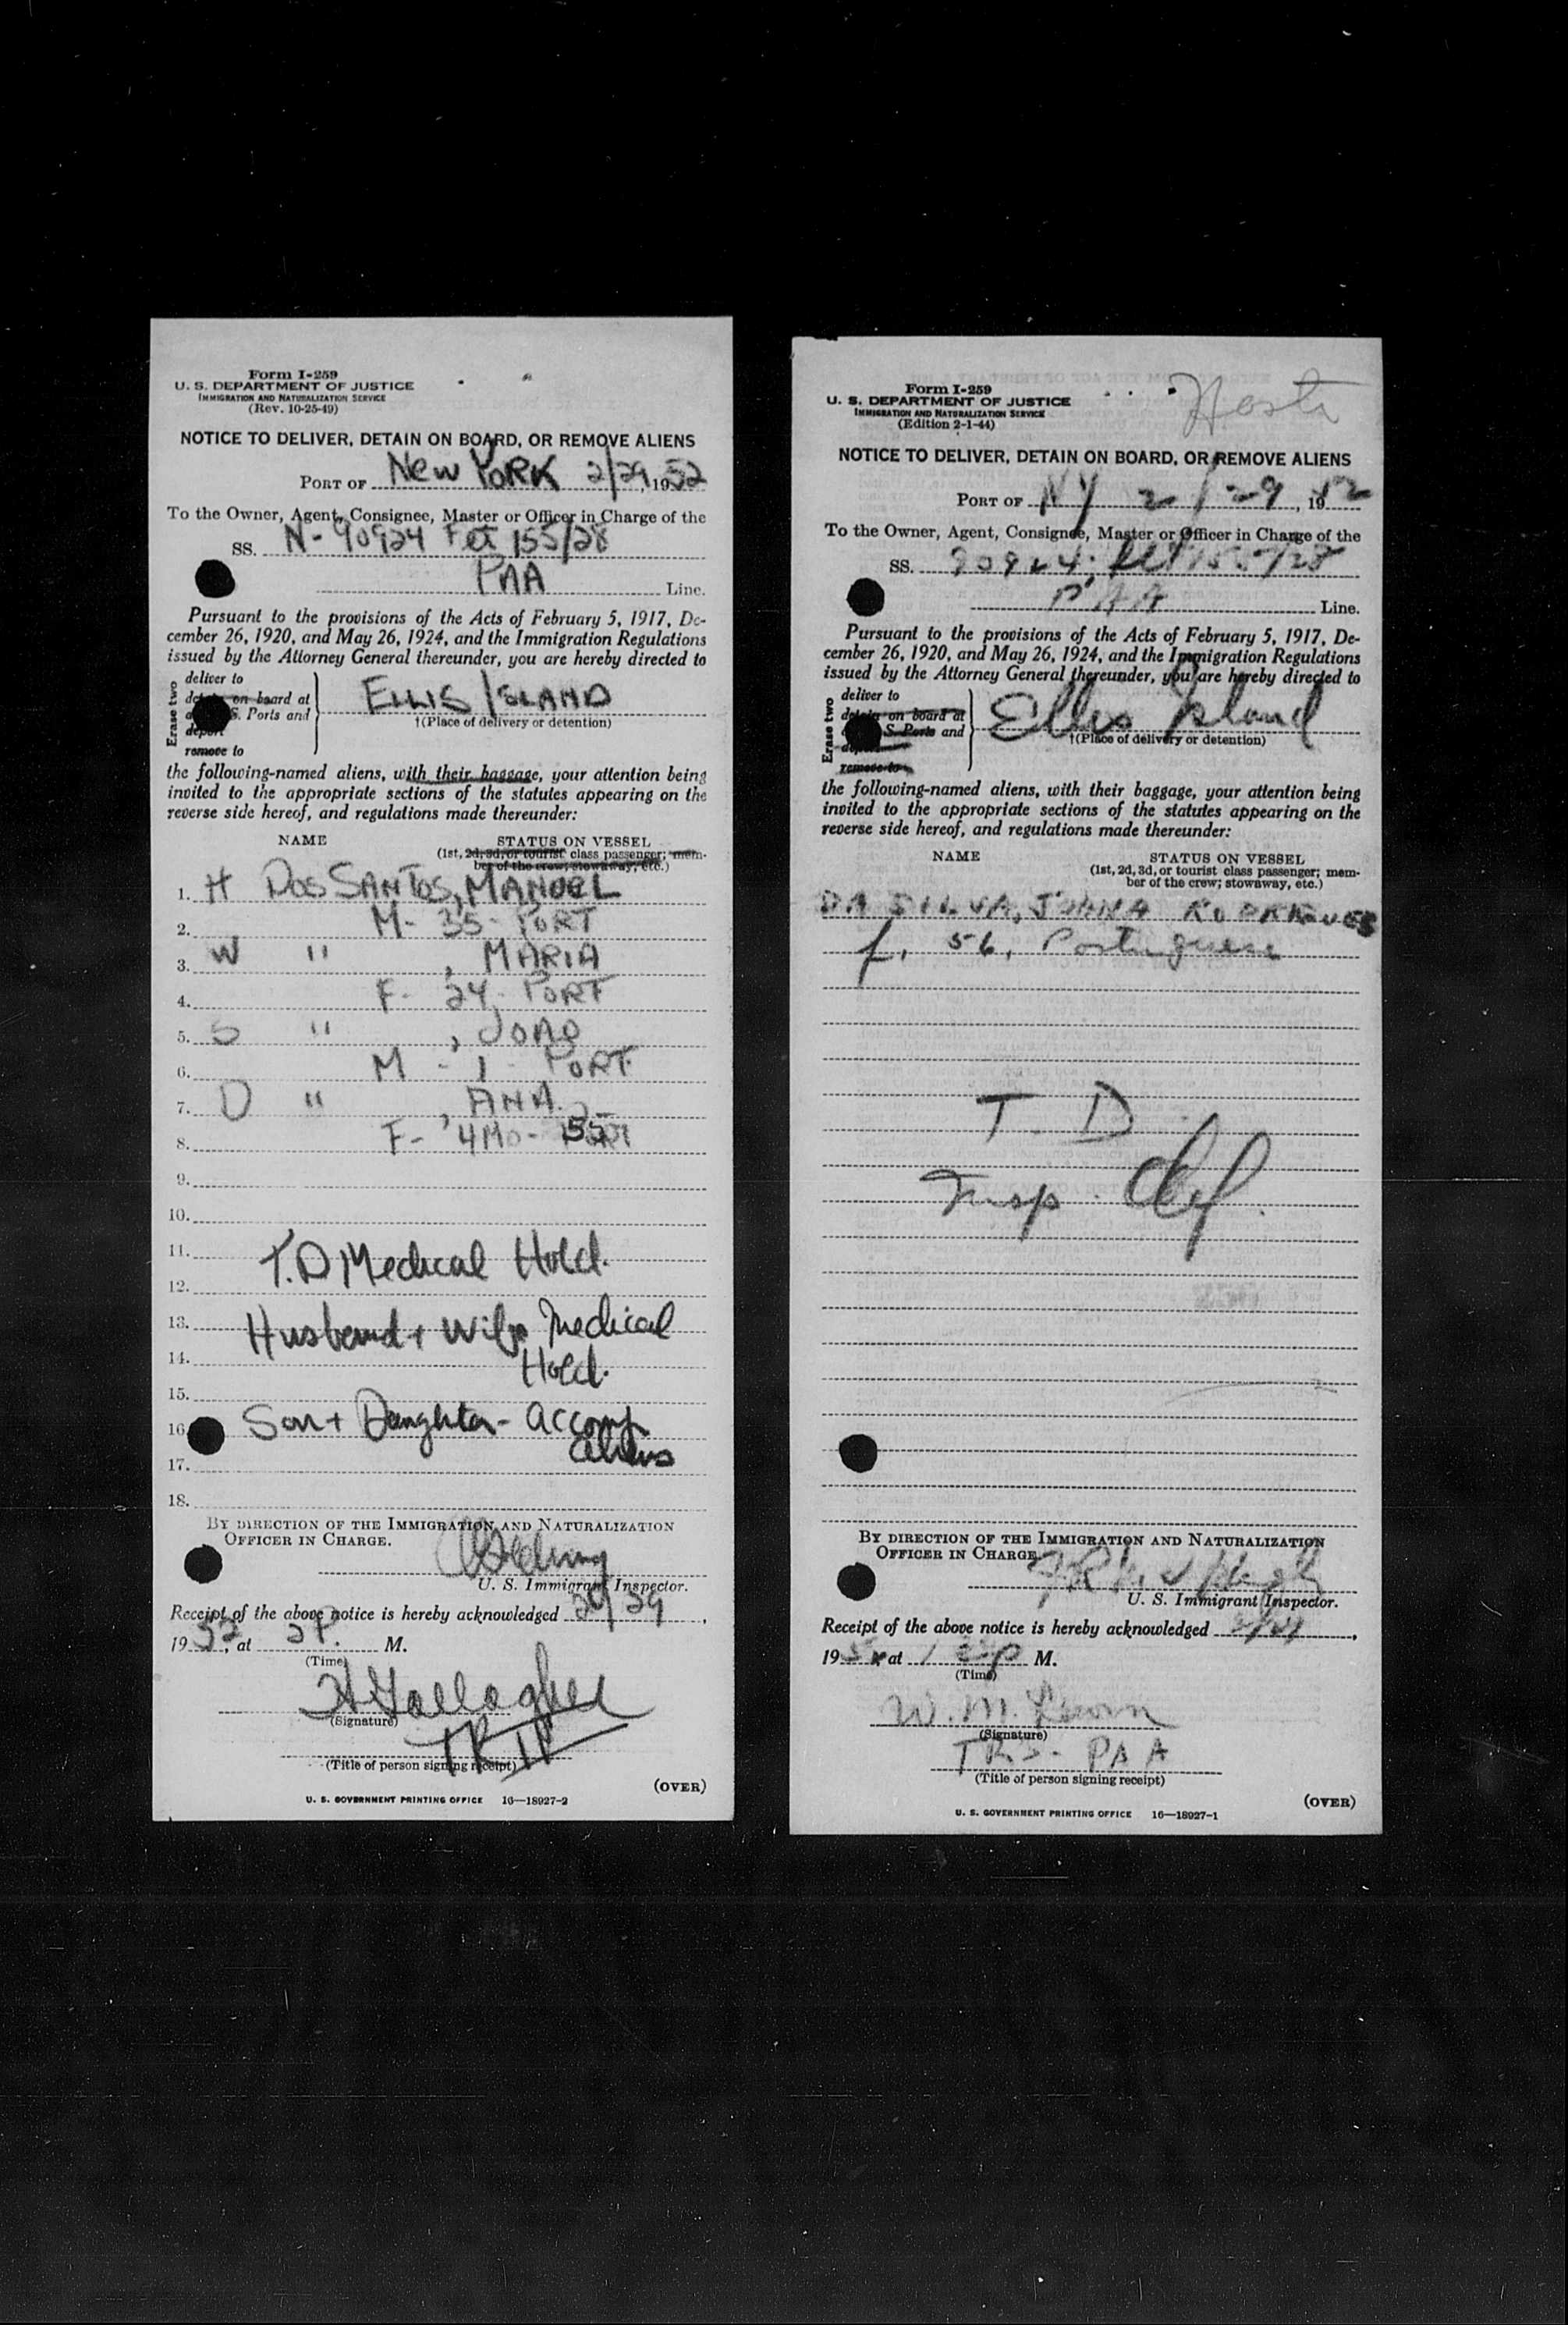 Form I-259
U. S. DEPARTMENT OF JUSTICE
IMMIGRATION AND NATURALIZATION SERVICE
(Rev. 10-25-49)
NOTICE TO DELIVER, DETAIN ON BOARD, OR REMOVE ALIENS
PORT OF New YORK 2/29, 1952
To the Owner, Agent, Consignee, Master or Officer in Charge of the
SS. N-90924 Flt 155/28
PAA Line.
Pursuant to the provisions of the Acts of February 5, 1917, De-
cember 26, 1920, and May 26, 1924, and the Immigration Regulations
issued by the Attorney General thereunder, you are hereby directed to
Erase two
deliver to
detain on board at
S. Ports and
deport
remove to
ELLIS ISLAND
†(Place of delivery or detention)
the following-named aliens, with their baggage, your attention being
invited to the appropriate sections of the statutes appearing on the
reverse side hereof, and regulations made thereunder:
NAME STATUS ON VESSEL
(1st, 2d, 3d, or tourist class passenger; mem-
ber of the crew; stowaway, etc.)
1. H DOS SANTOS, MANUEL
2. M- 35- PORT
3. W " , MARIA
4. F- 24- PORT
5. S " , JOAO
6. M - 1 - PORT
7. D " , ANA
8. F- 4 MO- PORT
9.
10.
11. T.D Medical Hold.
12.
13. Husband + Wife Medical
14. Hold.
15.
16. Son + Daughter- accomp
aliens
17.
18.
BY DIRECTION OF THE IMMIGRATION AND NATURALIZATION
OFFICER IN CHARGE.
U. S. Immigrant Inspector.
Receipt of the above notice is hereby acknowledged 2/29,
1952, at 2 P. M.
(Time)
H Gallagher
(Signature)
(Title of person signing receipt)
(OVER)
U. S. GOVERNMENT PRINTING OFFICE 16—18927-2
Form I-259
U. S. DEPARTMENT OF JUSTICE
IMMIGRATION AND NATURALIZATION SERVICE
(Edition 2-1-44)
NOTICE TO DELIVER, DETAIN ON BOARD, OR REMOVE ALIENS
PORT OF NY 2/29, 1952
To the Owner, Agent, Consignee, Master or Officer in Charge of the
SS. 90924, flt 155/28
PAA Line.
Pursuant to the provisions of the Acts of February 5, 1917, De-
cember 26, 1920, and May 26, 1924, and the Immigration Regulations
issued by the Attorney General thereunder, you are hereby directed to
Erase two
deliver to
detain on board at
S. Ports and
remove to
Ellis Island
†(Place of delivery or detention)
the following-named aliens, with their baggage, your attention being
invited to the appropriate sections of the statutes appearing on the
reverse side hereof, and regulations made thereunder:
NAME STATUS ON VESSEL
(1st, 2d, 3d, or tourist class passenger; mem-
ber of the crew; stowaway, etc.)
DA SILVA, JOANA RODRIGUES
f, 56, Portuguese
T. D
Insp. Clf.
BY DIRECTION OF THE IMMIGRATION AND NATURALIZATION
OFFICER IN CHARGE.
U. S. Immigrant Inspector.
Receipt of the above notice is hereby acknowledged 2/29,
195 at 1 P M.
(Time)
W. M.
(Signature)
PAA
(Title of person signing receipt)
(OVER)
U. S. GOVERNMENT PRINTING OFFICE 16—18927-1